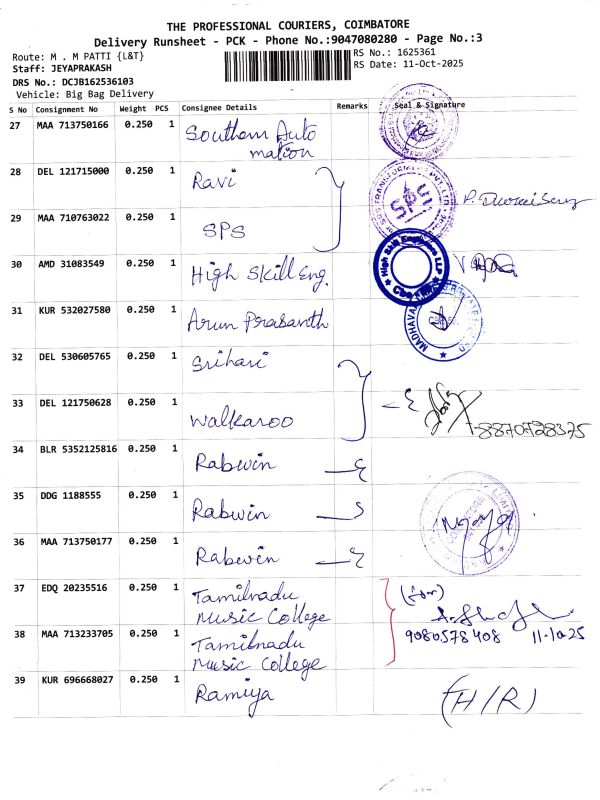 THE PROFESSIONAL COURIERS, COIMBATORE
Delivery Runsheet - PCK - Phone No.:9047080280 - Page No.:3
Route: M . M PATTI {L&T}
RS No.: 1625361
Staff: JEYAPRAKASH
RS Date: 11-Oct-2025
DRS No.: DCJB162536103
Vehicle: Big Bag Delivery
S No Consignment No Weight PCS Consignee Details Remarks Seal & Signature
27 MAA 713750166 0.250 1 Southern Auto
mation
28 DEL 121715000 0.250 1 Ravi
29 MAA 710763022 0.250 1 SPS
30 AMD 31083549 0.250 1 High Skill Eng.
31 KUR 532027580 0.250 1 Arun Prasanth
32 DEL 530605765 0.250 1 Srihari
33 DEL 121750628 0.250 1 Walkaroo
8870728375
34 BLR 5352125816 0.250 1 Rabwin
35 DDG 1188555 0.250 1 Rabwin
36 MAA 713750177 0.250 1 Rabwin
37 EDQ 20235516 0.250 1 Tamilnadu
Music College
38 MAA 713233705 0.250 1 Tamilnadu
9080578408 11.10.25
Music College
39 KUR 696668027 0.250 1 Ramiya
(H/R)